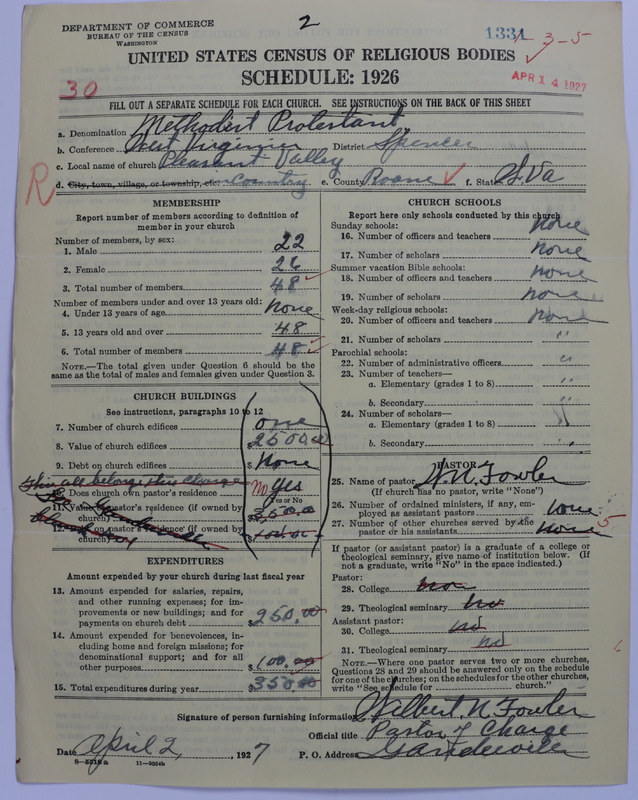 DEPARTMENT OF COMMERCE
BUREAU OF THE CENSUS
WASHINGTON
2
1331
3-5
UNITED STATES CENSUS OF RELIGIOUS BODIES
SCHEDULE: 1926
APR 14 1927
30
FILL OUT A SEPARATE SCHEDULE FOR EACH CHURCH. SEE INSTRUCTIONS ON THE BACK OF THIS SHEET
a. Denomination Methodist Protestant
b. Conference West Virginia District Spencer
c. Local name of church Pleasant Valley
R
d. City, town, village, or township, etc. in Country e. County Roane f. State W. Va
MEMBERSHIP
Report number of members according to definition of
member in your church
Number of members, by sex:
1. Male 22
2. Female 26
3. Total number of members 48
Number of members under and over 13 years old:
4. Under 13 years of age None
5. 13 years old and over 48
6. Total number of members 48
NOTE.—The total given under Question 6 should be
same as the total of males and females given under Question 3.
CHURCH BUILDINGS
See instructions, paragraphs 10 to 12
7. Number of church edifices one
8. Value of church edifices $2500.00
9. Debt on church edifices $None
10. Does church own pastor's residence? No yes
Yes or No
11. Value of pastor's residence (if owned by
church)
12. Debt on pastor's residence (if owned by
church)
EXPENDITURES
Amount expended by your church during last fiscal year
13. Amount expended for salaries, repairs,
and other running expenses; for im-
provements or new buildings; and for
payments on church debt $250.00
14. Amount expended for benevolences,
including home and foreign missions; for
denominational support; and for all
other purposes $100.00
15. Total expenditures during year $350.00
CHURCH SCHOOLS
Report here only schools conducted by this church
Sunday schools:
16. Number of officers and teachers None
17. Number of scholars None
Summer vacation Bible schools:
18. Number of officers and teachers None
19. Number of scholars None
Week-day religious schools:
20. Number of officers and teachers None
21. Number of scholars "
Parochial schools:
22. Number of administrative officers "
23. Number of teachers—
a. Elementary (grades 1 to 8) "
b. Secondary "
24. Number of scholars—
a. Elementary (grades 1 to 8) "
b. Secondary "
PASTOR
25. Name of pastor W. N. Fowler
(If church has no pastor, write "None")
26. Number of ordained ministers, if any, em-
ployed as assistant pastors none
27. Number of other churches served by the
pastor or his assistants none 5
If pastor (or assistant pastor) is a graduate of a college or
theological seminary, give name of institution below. (If
not a graduate, write "No" in the space indicated.)
Pastor:
28. College no
29. Theological seminary no
Assistant pastor:
30. College no
31. Theological seminary no
NOTE.—Where one pastor serves two or more churches,
Questions 28 and 29 should be answered only on the schedule
for one of the churches; on the schedules for the other churches,
write "See schedule for church."
Signature of person furnishing information Wilbert N. Fowler
Official title Pastor of Charge
Date April 2, 1927 P. O. Address Gandeeville
8—5519a 11—9054b